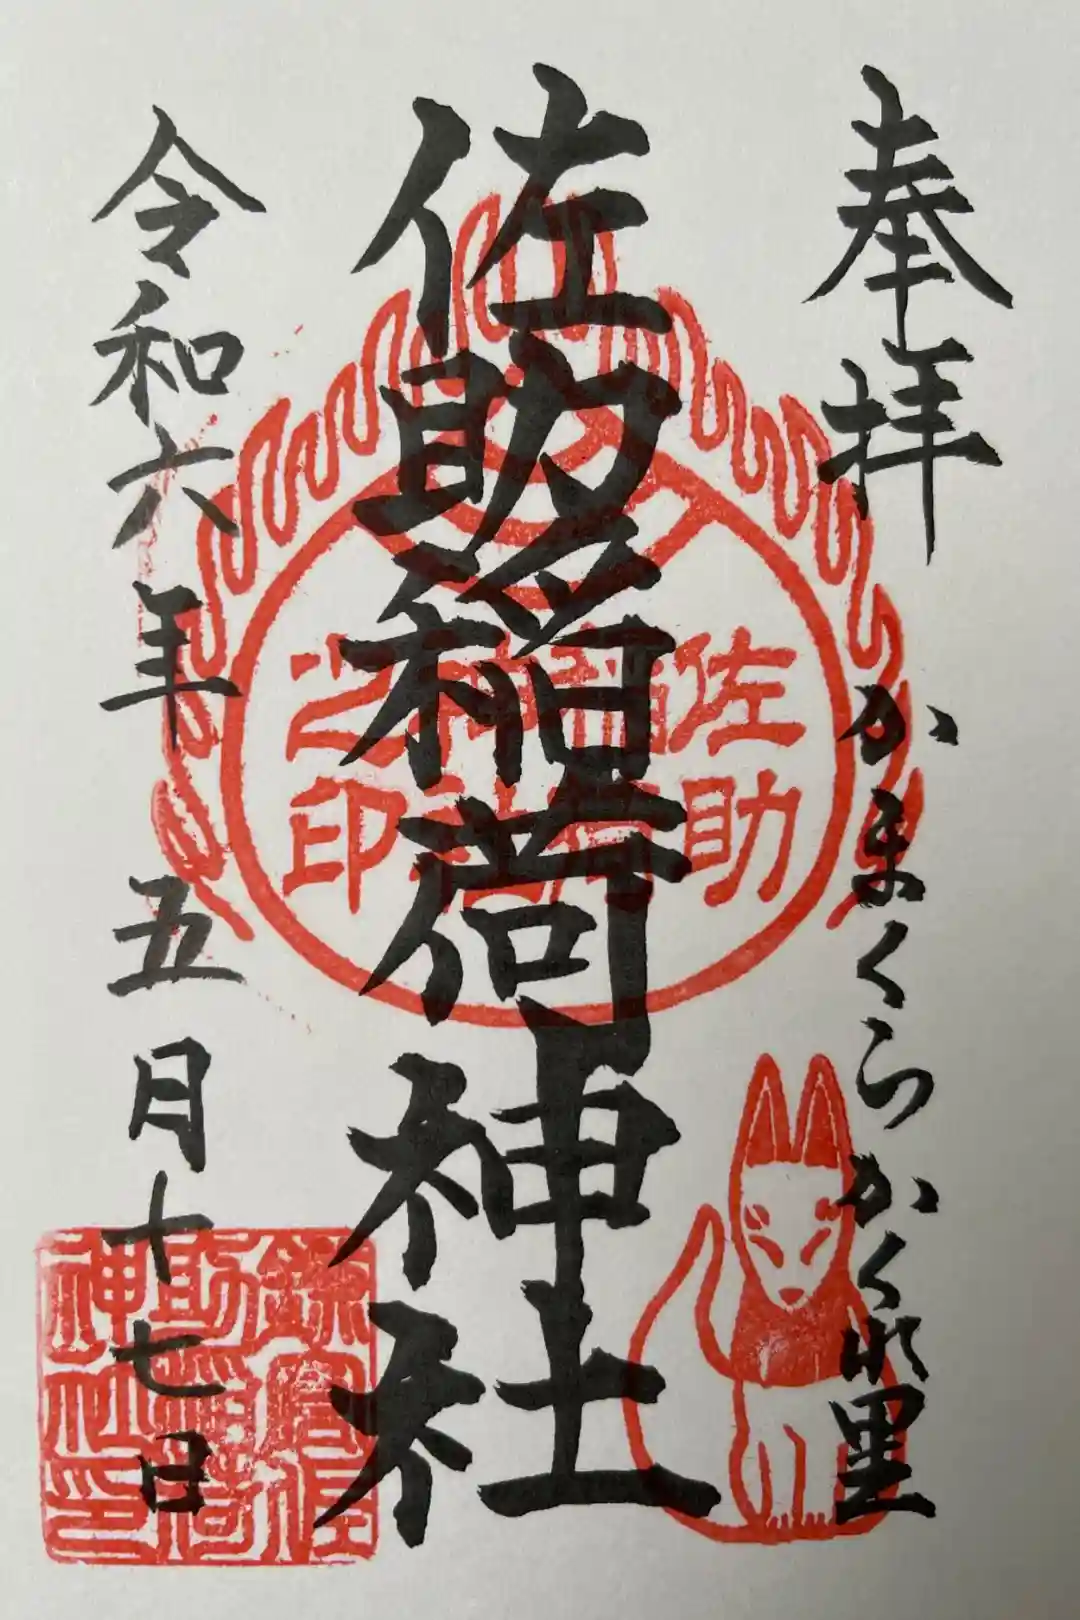 奉拝 かまくらかくれ里
佐助稲荷神社
令和六年五月十七日
佐助
稲荷
神社
之印
鎌倉佐
助稲荷
神社印